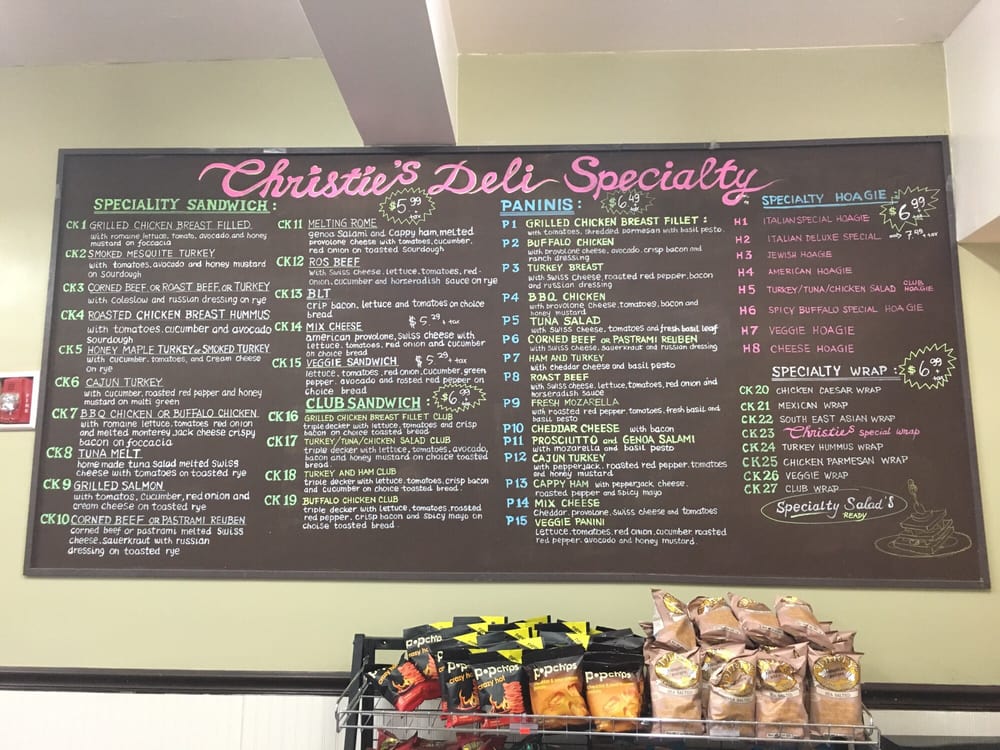 Christie's Deli Specialty
SPECIALITY SANDWICH :
$5.99
CK 1 GRILLED CHICKEN BREAST FILLED
with romaine lettuce, tomato, avocado, and honey
mustard on foccacia
CK2 SMOKED MESQUITE TURKEY
with tomatoes, avocado and honey mustard
on sourdough
CK3 CORNED BEEF, OR ROAST BEEF, OR TURKEY
with coleslow and russian dressing on rye
CK4 ROASTED CHICKEN BREAST HUMMUS
with tomatoes, cucumber and avocado
sourdough
CK5 HONEY MAPLE TURKEY or SMOKED TURKEY
with cucumber, tomatoes, and cream cheese
on rye
CK6 CAJUN TURKEY
with cucumber, roasted red pepper and honey
mustard on multi green
CK7 BBQ CHICKEN OR BUFFALO CHICKEN
with romaine lettuce, tomatoes red onion
and melted monterey jack cheese crispy
bacon on foccacia
CK8 TUNA MELT
home made tuna salad melted swiss
cheese with tomatoes on toasted rye
CK9 GRILLED SALMON
with tomatos, cucumber, red onion and
cream cheese on toasted rye
CK10 CORNED BEEF OR PASTRAMI REUBEN
corned beef or pastrami melted swiss
cheese, sauerkraut with russian
dressing on toasted rye
CK11 MELTING ROME
genoa salami and cappy ham, melted
provolone cheese with tomatoes, cucumber,
red onion on toasted sourdough
CK12 ROS BEEF
with swiss cheese, lettuce, tomatoes, red-
onion, cucumber and horseradish sauce on rye
CK13 BLT
crip bacon, lettuce and tomatoes on choice
bread
CK14 MIX CHEESE $5.29 + tax
american provolone, swiss cheese with
lettuce, tomatoes, red onion and cucumber
on choice bread
CK15 VEGGIE SANDWICH $5.29 + tax
with lettuce, tomatoes, red onion, cucumber, green
pepper, avocado and rosted red pepper on
choice bread
CLUB SANDWICH :
$6.99
CK16 GRILLED CHICKEN BREAST FILLET CLUB
triple decker with lettuce, tomatoes and crisp
bacon on choice toasted bread
CK17 TURKEY/TUNA/CHICKEN SALAD CLUB
triple decker with lettuce, tomatoes, avocado,
bacon and honey mustard on choice toasted
bread
CK18 TURKEY AND HAM CLUB
triple decker with lettuce, tomatoes, crisp bacon
and cucumber on choice toasted bread.
CK19 BUFFALO CHICKEN CLUB
triple decker with lettuce, tomatoes, roasted
red pepper, crisp bacon and spicy mayo on
choise toasted bread.
PANINIS :
$6.49
P1 GRILLED CHICKEN BREAST FILLET :
with tomatoes, shredded parmesan with basil pesto.
P2 BUFFALO CHICKEN
with provolone cheese, avocado, crisp bacon and
ranch dressing
P3 TURKEY BREAST
with swiss cheese, roasted red pepper, bacon
and russian dressing
P4 BBQ CHICKEN
with provolone cheese, tomatoes, bacon and
honey mustard
P5 TUNA SALAD
with swiss cheese, tomatoes and fresh basil leaf
P6 CORNED BEEF OR PASTRAMI REUBEN
with swiss cheese, sauerkraut and russian dressing
P7 HAM AND TURKEY
with cheddar cheese and basil pesto
P8 ROAST BEEF
with swiss cheese, lettuce, tomatoes, red onion and
horseradish sauce
P9 FRESH MOZARELLA
with roasted red pepper, tomatoes, fresh basil, and
basil pesto
P10 CHEDDAR CHEESE with bacon
P11 PROSCIUTTO and GENOA SALAMI
with mozarella and basil pesto
P12 CAJUN TURKEY
with pepperjack, roasted red pepper, tomatoes
and honey mustard
P13 CAPPY HAM with pepperjack cheese,
roasted pepper and spicy mayo
P14 MIX CHEESE
Cheddar, provolone, swiss cheese and tomatoes
P15 VEGGIE PANINI
Lettuce, tomatoes, red onion, cucumber, roasted
red pepper, avocado and honey mustard.
SPECIALTY HOAGIE :
$6.99
H1 ITALIAN SPECIAL HOAGIE
H2 ITALIAN DELUXE SPECIAL 7.99 + tax
H3 JEWISH HOAGIE
H4 AMERICAN HOAGIE
H5 TURKEY/TUNA/CHICKEN SALAD CLUB HOAGIE
H6 SPICY BUFFALO SPECIAL HOAGIE
H7 VEGGIE HOAGIE
H8 CHEESE HOAGIE
SPECIALTY WRAP :
$6.99
CK 20 CHICKEN CAESAR WRAP
CK 21 MEXICAN WRAP
CK 22 SOUTH EAST ASIAN WRAP
CK23 Christie's special wrap
CK 24 TURKEY HUMMUS WRAP
CK 25 CHICKEN PARMESAN WRAP
CK 26 VEGGIE WRAP
CK 27 CLUB WRAP
Specialty Salad'S
READY
popchips
crazy hot
popchips
crazy hot
popchips
crazy hot
popchips
popchips